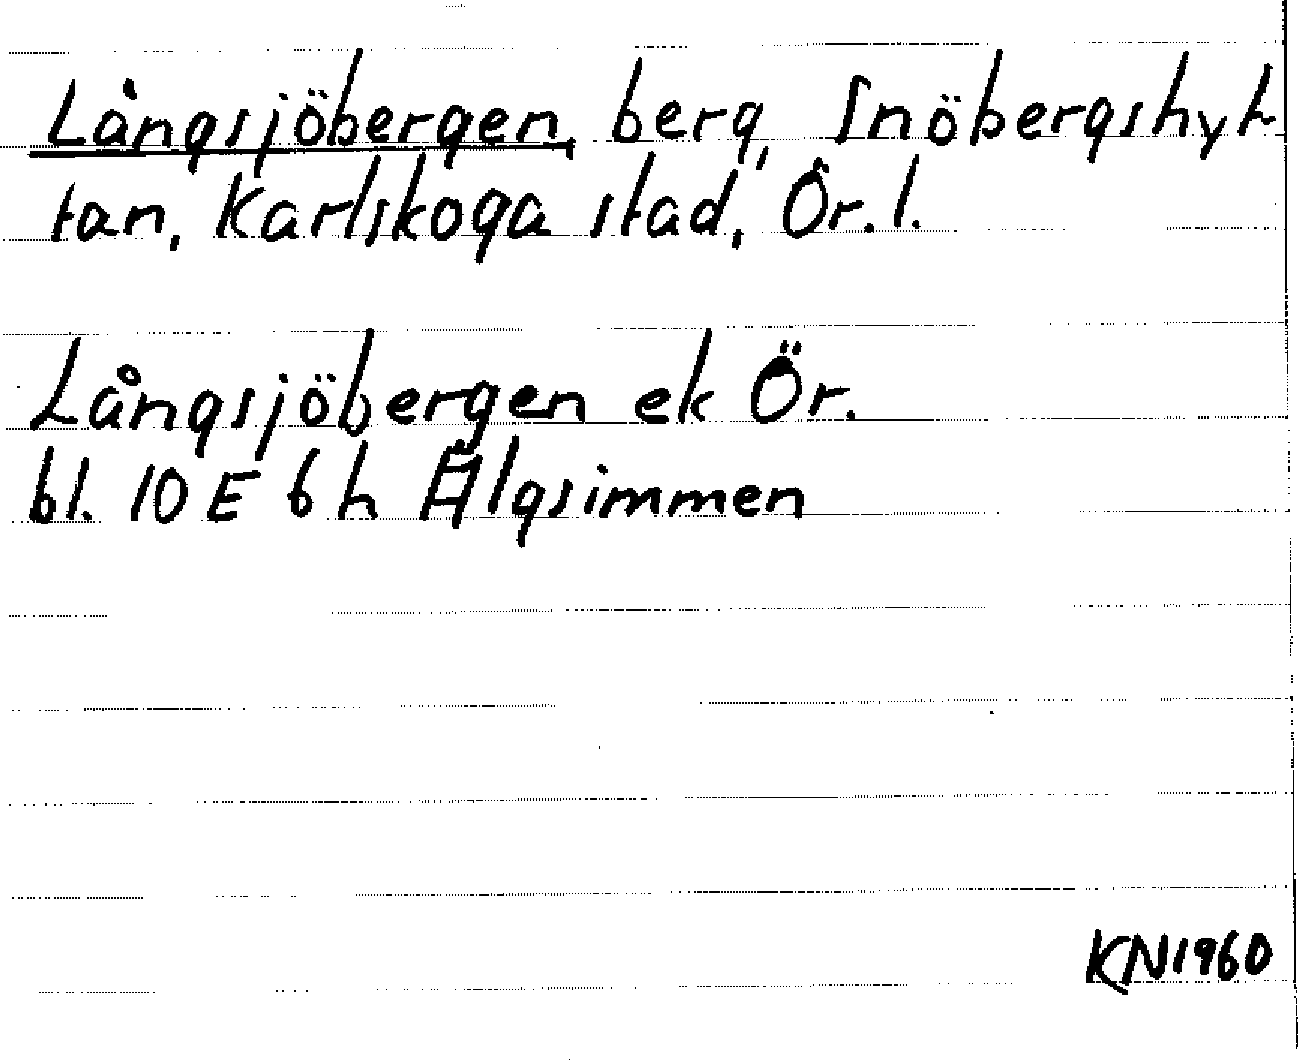 Långsjöbergen, berg, Snöbergshyt-
tan, Karlskoga stad, Ör. l.
Långsjöbergen ek Ör.
bl. 10 E 6 h Älgsimmen
KN1960